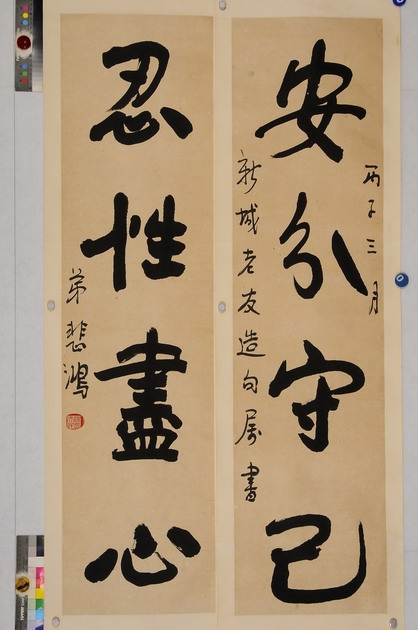 丙子三月
安分守己
新城老友造句属書
忍性盡心
弟悲鴻